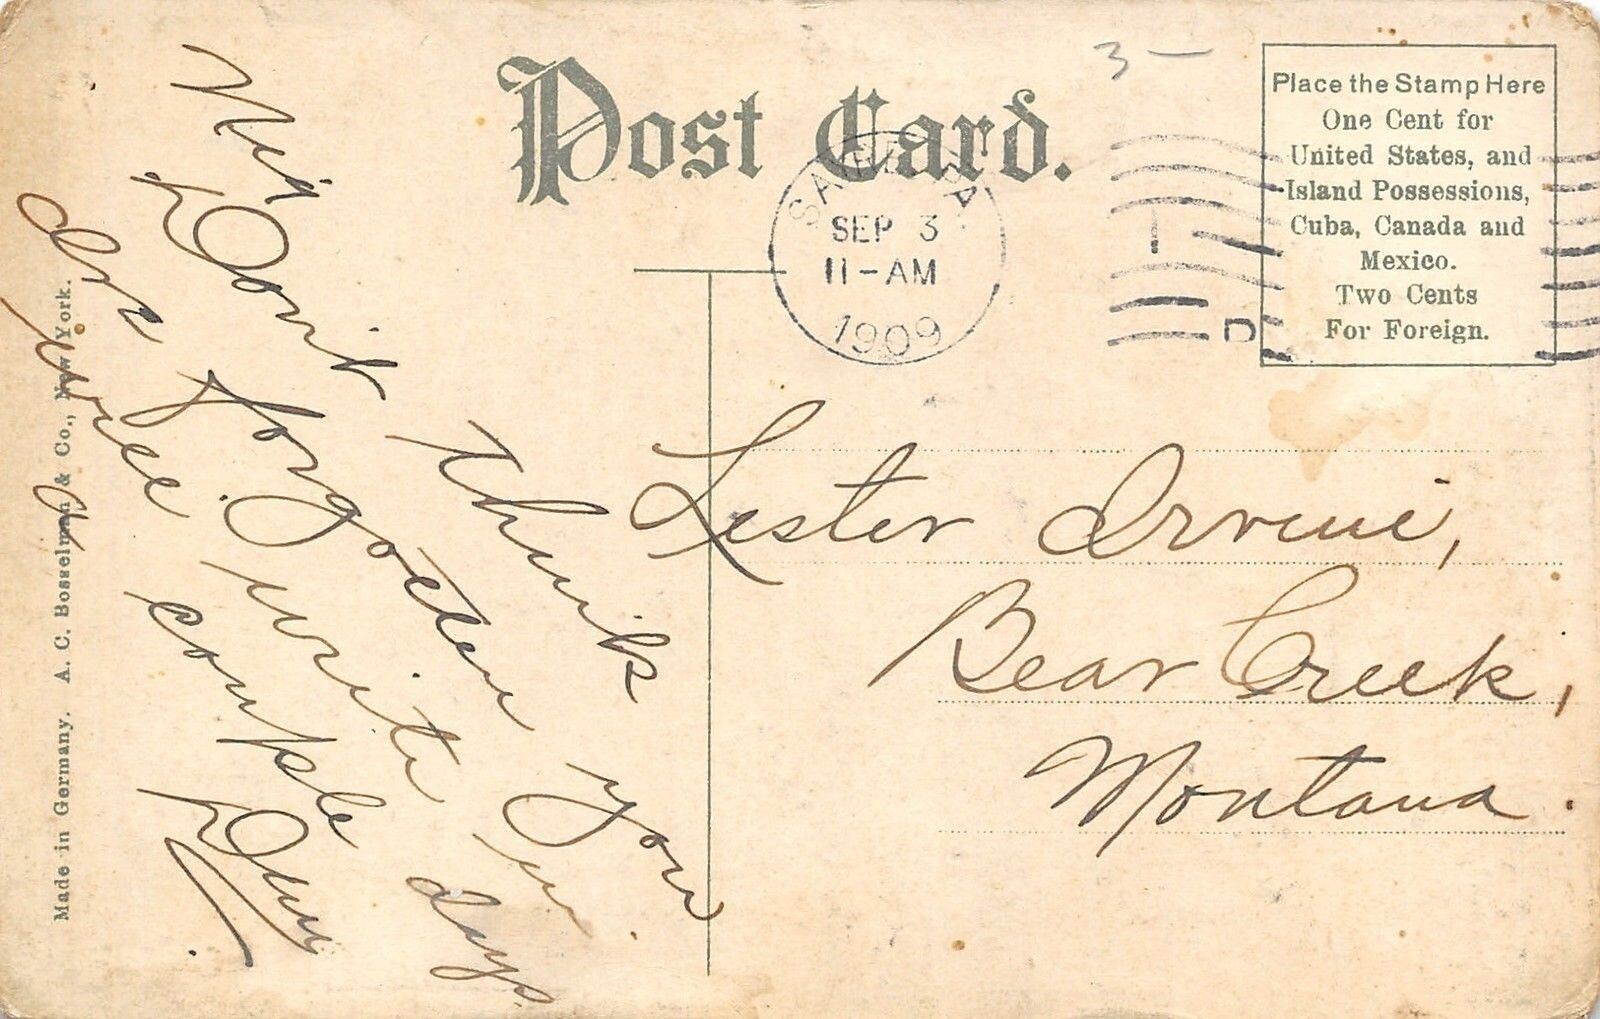 Post Card.
3 -
SAYRE PA.
SEP 3
11-AM
1909
D
Place the Stamp Here
One Cent for
United States, and
Island Possessions,
Cuba, Canada and
Mexico.
Two Cents
For Foreign.
Don't think you
are forgotten
will write in
a couple days
Lester Irvine,
Bear Creek,
Montana.
Made in Germany. A. C. Bosselman & Co., New York.